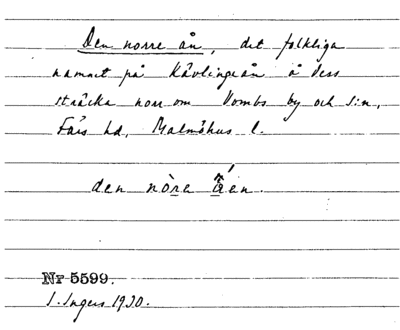 Den norre ån, det folkliga
namnet på Kävlingeån å dess
sträcka norr om Vombs by och s:n,
Färs hd, Malmöhus l.
den nòre åen.
Nr 5599.
I. Ingers 1930.